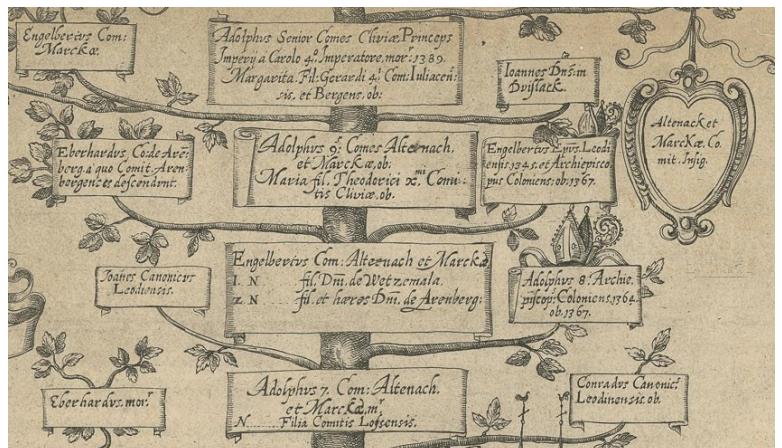 Engelbertvs Com:
Marckæ.
Adolphvs Senior Comes Cliviæ Princeps
Imperij a Carolo 4º. Imperatore, mor: 1389.
Margarita. Fil: Gerardi 4. Com: Iuliacen:
sis. et Bergens. ob:
Ioannes Dns. in
Eberhardvs. Co: de Arē:
berg. a quo Comit. Aren:
bergenses descendunt.
Adolphvs 9. Comes Altenach.
et Marckæ, ob:
Maria fil. Theodorici x. Comi:
tis Cliviæ, ob.
Engelbertvs Epūs. Leodi
ensis 1345. et Archiepisco:
pus Coloniens: ob. 1367.
Altenack et
Marckæ. Co.
mit. Insig.
Engelbertvs Com: Altenach et Marckæ
1. N. fil. Dni. de Wetzemala.
2. N. fil. et hæres Dni. de Arenberg:
Ioañes Canonicus
Leodiensis.
Adolphvs 8. Archie.
piscop: Coloniens. 1364.
ob. 1367.
Adolphvs 7. Com: Altenach.
et Marckæ, m.
N. Filia Comitis Lossensis.
Eberhardvs. mor.
Conradvs Canonic9
Leodinensis. ob.